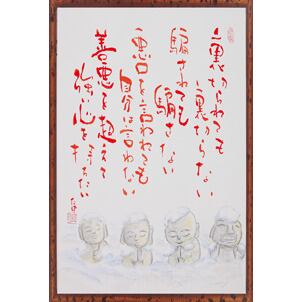 裏切られても
裏切らない
騙されても
騙さない
悪口を言われても
自分は言わない
善悪を超えて
強い心を持ちたい